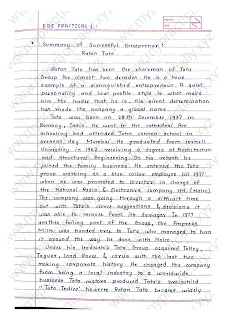 EDE PRACTICAL 1 :
* Summary of Successful Entrepreneur :
Ratan Tata
Ratan Tata has been the chairman of Tata
Group for almost two decades. He is a true
example of a distinguished entrepreneur. A quiet
personality and low profile style is what make
him the leader that he is. His silent determination
has made the company a global name.
Tata was born on 28th December 1937 in
Bombay, India. He went to the cathedral for
schooling and attended John cannon school in
present day Mumbai. He graduated from cornell
University in 1962 receiving a degree of Architecture
and structural Engineering. On his return he
joined the family business. He entered the Tata
group working as a blue collar employee till 1971
when he was promoted to Director in charge of
the National Radio & Electronics company Ltd. (Nelco)
The company was going through a difficult time
but with Tata's clever suggestions & decisions it
was able to recover from its damages. In 1977
another failing part of the Group, the Empress
Mills was handed over to Tata who managed to turn
it around the way he done with Nelco.
Under his leadership Tata Group acquired Tetley,
Jaguar, Land Rover & corus with the last two
making corporate history. He changed the company
from being a local industry to a worldwide
business. Tata motors produced Tata's brainchild
'Tata Indica'. however Ratan Tata became widely